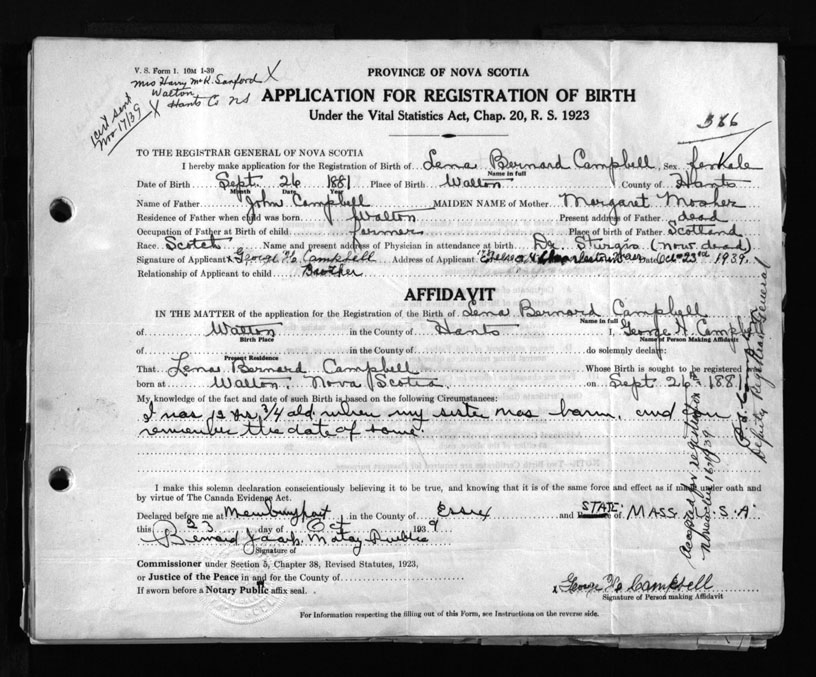 V. S. Form 1. 10M 1-39
Mrs Harry McK. Sanford X
Walton
X Hants Co NS
Cert sent
Nov 17/39
PROVINCE OF NOVA SCOTIA
APPLICATION FOR REGISTRATION OF BIRTH
Under the Vital Statistics Act, Chap. 20, R. S. 1923
586
TO THE REGISTRAR GENERAL OF NOVA SCOTIA
I hereby make application for the Registration of Birth of Lena Bernard Campbell, Sex female
Name in full
Date of Birth Sept. 26 1881 Place of Birth Walton County of Hants
Month Date Year
Name of Father John Campbell MAIDEN NAME of Mother Margaret Mosher
Residence of Father when child was born Walton Present address of Father dead
Occupation of Father at Birth of child farmer Place of birth of Father Scotland
Race Scotch Name and present address of Physician in attendance at birth Dr. Sturgis (now dead)
Signature of Applicant x George H. Campbell Address of Applicant Date Oct 23rd 1939
Relationship of Applicant to child Brother
AFFIDAVIT
IN THE MATTER of the application for the Registration of the Birth of Lena Bernard Campbell
Name in full
of Walton in the County of Hants I, George H. Campbell
Birth Place Name of Person Making Affidavit
of in the County of do solemnly declare:
Present Residence
That Lena Bernard Campbell Whose Birth is sought to be registered
born at Walton Nova Scotia on Sept. 26th 1881
My knowledge of the fact and date of such Birth is based on the following Circumstances:
I was 12 yrs 3/4 old when my sister was born, and
remember the date of same.
I make this solemn declaration conscientiously believing it to be true, and knowing that it is of the same force and effect as if made under oath and
by virtue of The Canada Evidence Act.
Declared before me at Newburyport in the County of Essex and STATE of MASS. U.S.A.
this 23 day of Oct 1939
Bernard Jacob Notary Public
Signature of
Commissioner under Section 5, Chapter 38, Revised Statutes, 1923,
or Justice of the Peace in and for the County of
If sworn before a Notary Public affix seal.
x George H. Campbell
Signature of Person making Affidavit
For Information respecting the filling out of this Form, see Instructions on the reverse side.
Accepted for registration
November 16th/39
Deputy Registrar General